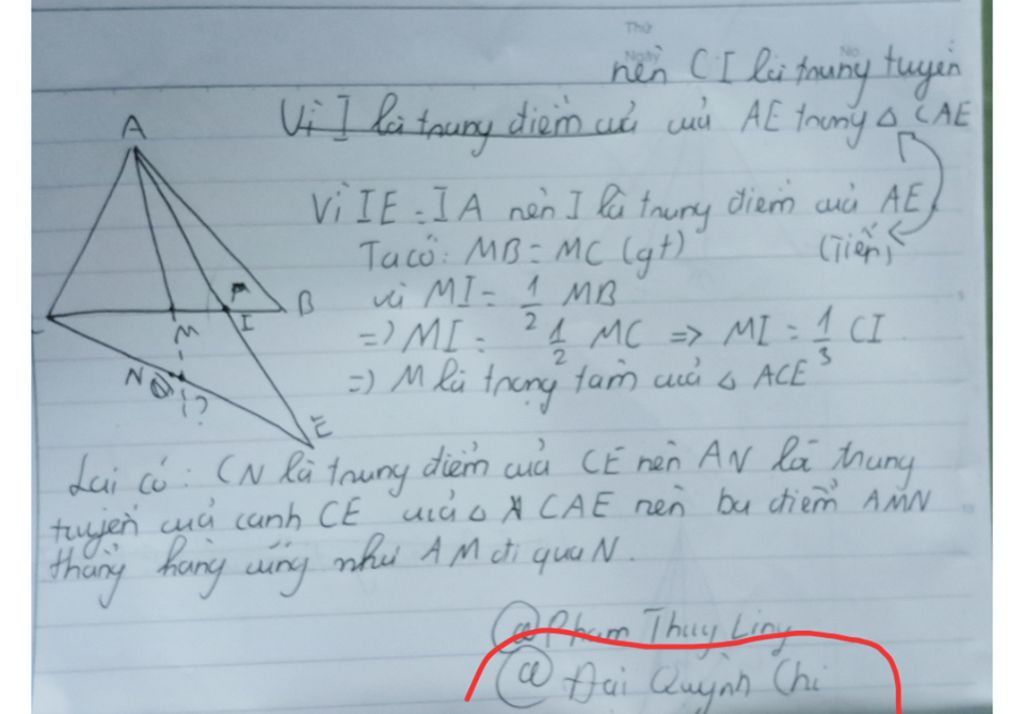 Thứ
Ngày No.
nên CI là trung tuyến
Vì I là trung điểm củả của AE trong △ CAE
A
Vì IE = IA nên I là trung điểm của AE
(Tiên)
Ta có: MB = MC (gt)
và MI = 1/2 MB
=> MI = 1/2 MC => MI = 1/3 CI
=> M là trọng tâm của △ ACE
B
M I
N
?
E
Lại có: CN là trung điểm của CE nên AN là trung
tuyến của cạnh CE của △ CAE nên ba điểm AMN
thẳng hàng cũng như AM đi qua N.
@Phạm Thuy Liny
@ Đai Quỳnh Chi